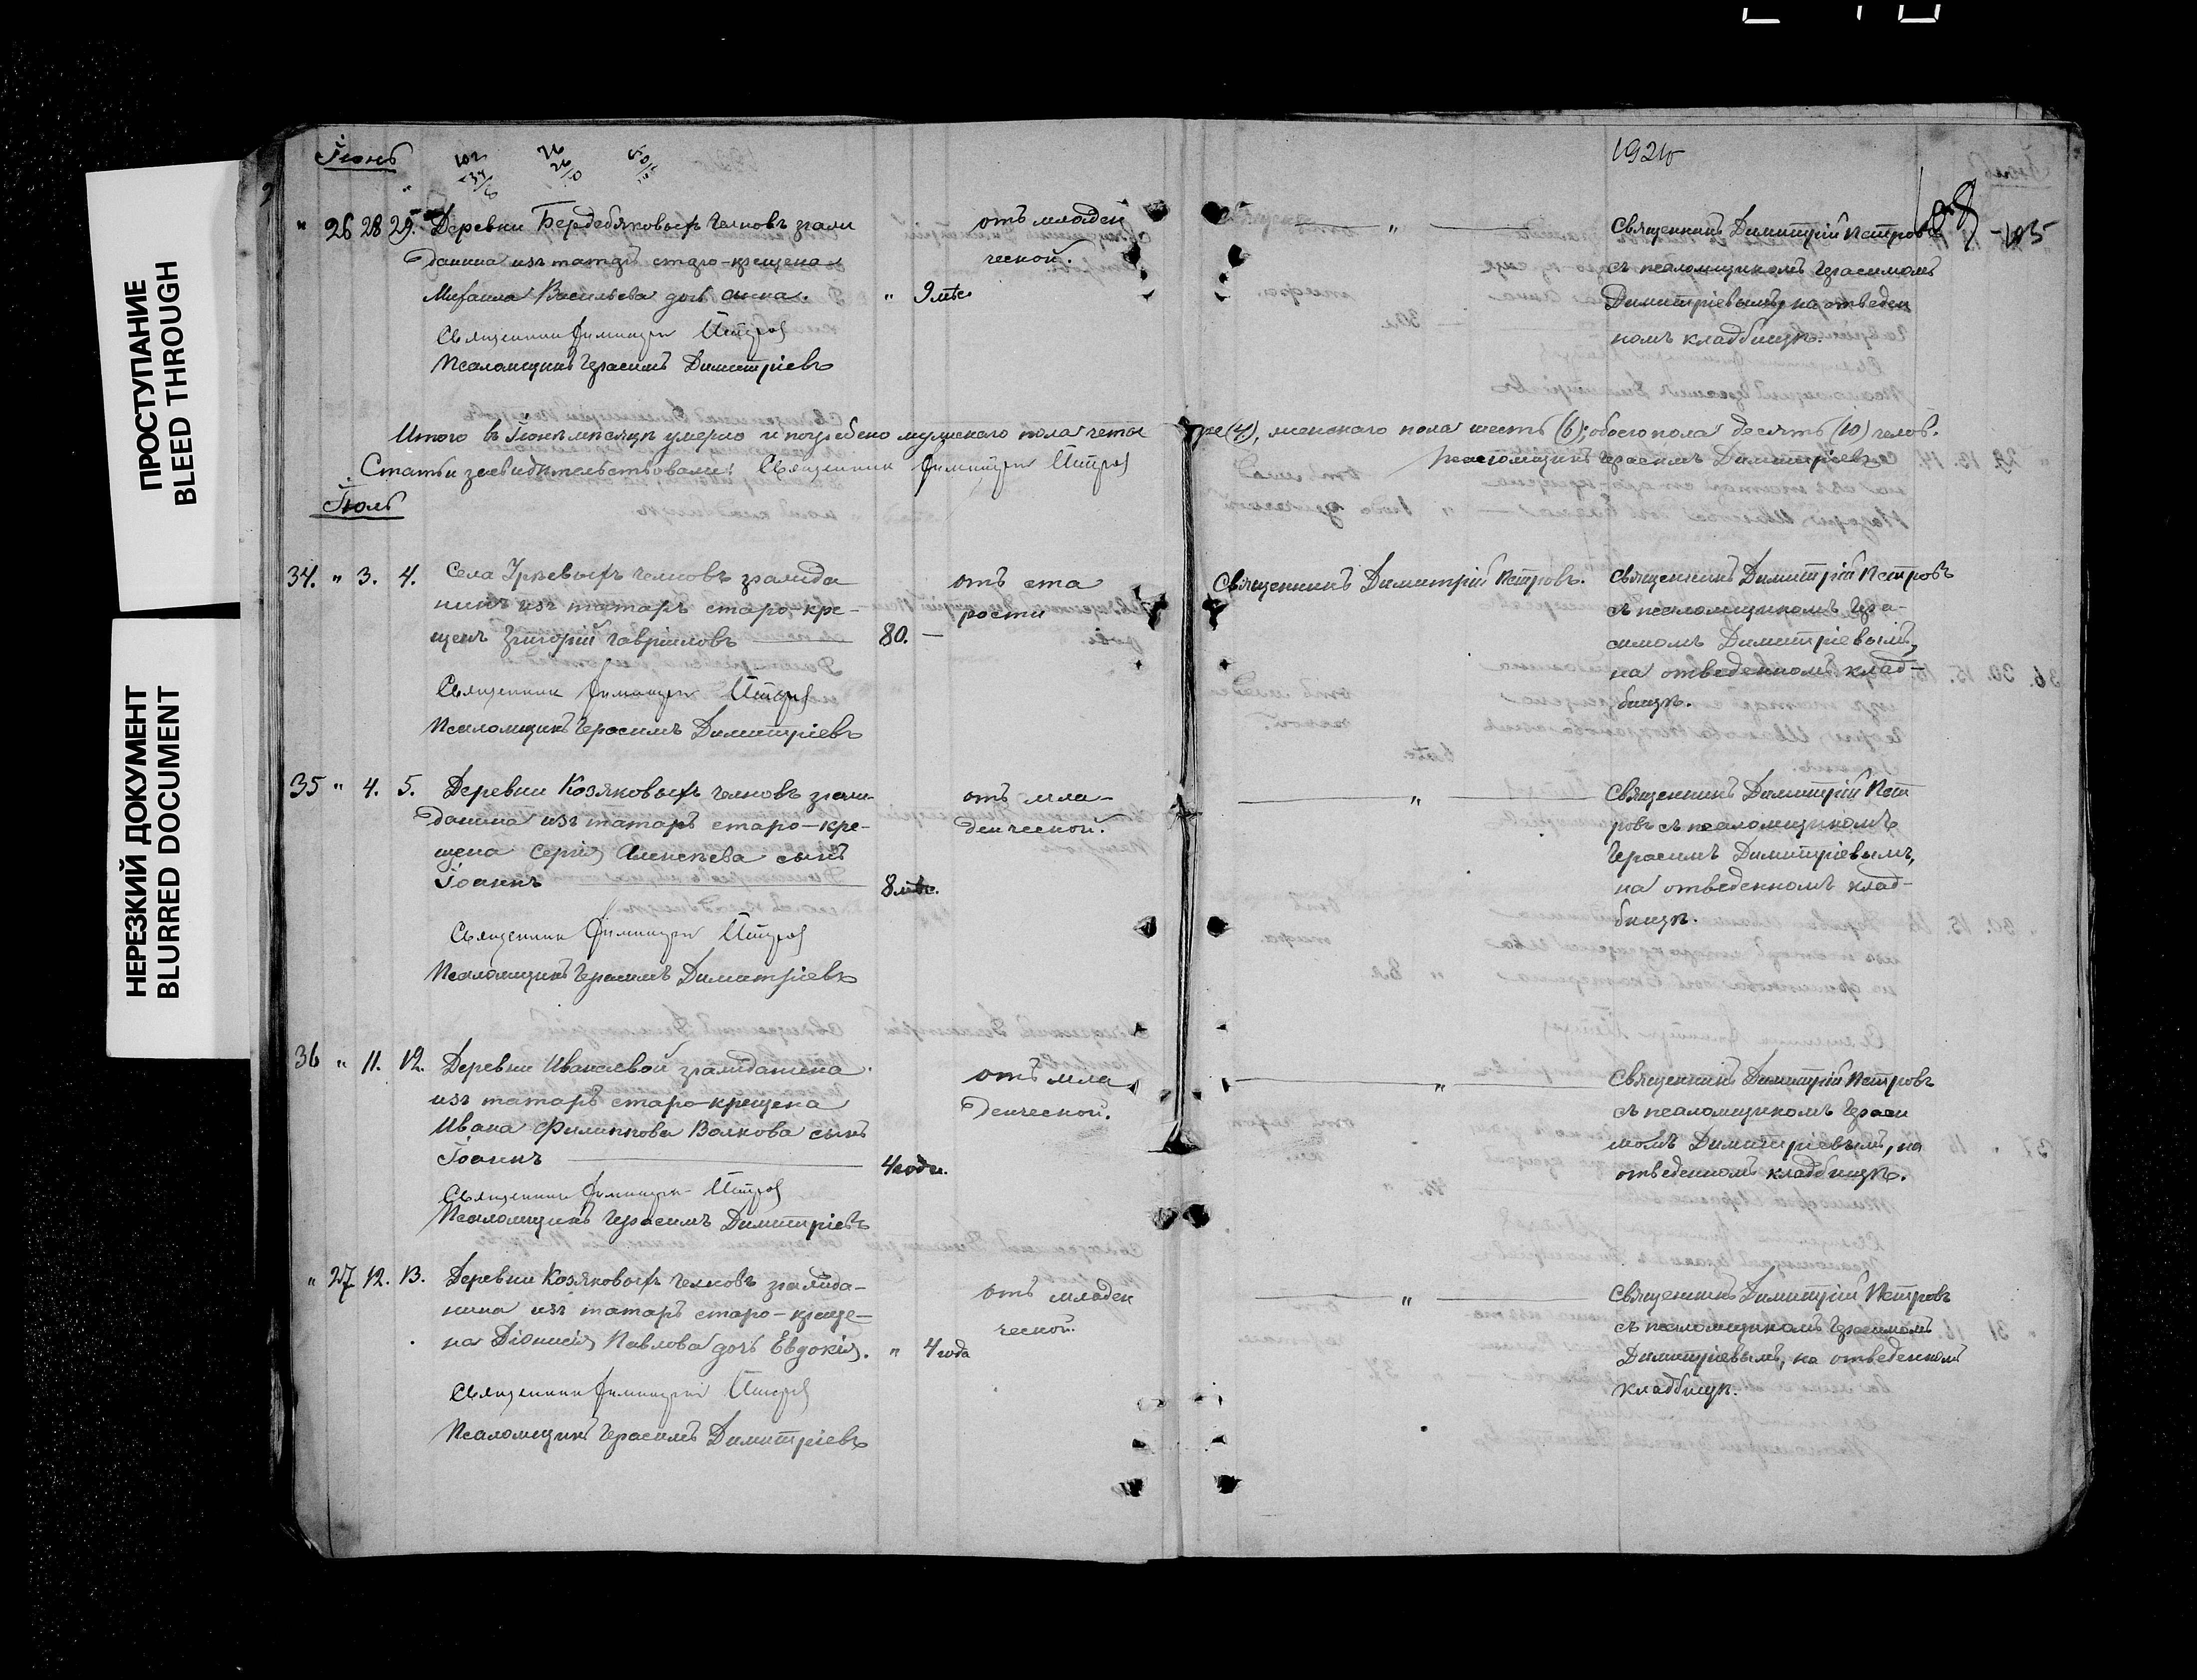 ПРОСТУПАНИЕ
BLEED THROUGH
НЕРЕЗКИЙ ДОКУМЕНТ
BLURRED DOCUMENT
Іюнь
1920
105
" 26 28 29. Деревни Бердебяковыхъ Челновъ гражданина изъ татаръ старо-крещена
Михаила Васильева дочь Анна. " 9 мѣс.
отъ младенческой.
Священникъ Димитрій Петровъ
съ псаломщикомъ Герасимомъ
Димитріевымъ, на отведенномъ кладбищѣ.
Священникъ Димитрій Петровъ
Псаломщикъ Герасимъ Димитріевъ
Итого въ Іюнѣ мѣсяцѣ умерло и погребено мужескаго пола четыре (4), женскаго пола шесть (6); обоего пола десять (10) челов.
Статьи засвидѣтельствовали: Священникъ Димитрій Петровъ Псаломщикъ Герасимъ Димитріевъ
Іюль
34. " 3. 4. Села Урѣевыхъ Челновъ гражданинъ изъ татаръ старо-крещенъ Григорій Гавріиловъ 80. —
отъ старости
Священникъ Димитрій Петровъ.
Священникъ Димитрій Петровъ
съ псаломщикомъ Герасимомъ Димитріевымъ,
на отведенномъ кладбищѣ.
Священникъ Димитрій Петровъ
Псаломщикъ Герасимъ Димитріевъ
35 " 4. 5. Деревни Козяковыхъ Челновъ гражданина изъ татаръ старо-крещена Сергія Алексѣева сынъ
Іоаннъ 8 мѣс.
отъ младенческой.
Священникъ Димитрій Петровъ съ псаломщикомъ
Герасимъ Димитріевымъ,
на отведенномъ кладбищѣ.
Священникъ Димитрій Петровъ
Псаломщикъ Герасимъ Димитріевъ
36 " 11. 12. Деревни Иванаевой гражданина
изъ татаръ старо-крещена
Ивана Филиппова Волкова сынъ
Іоаннъ 4 года.
отъ младенческой.
Священникъ Димитрій Петровъ
съ псаломщикомъ Герасимомъ Димитріевымъ, на
отведенномъ кладбищѣ.
Священникъ Димитрій Петровъ
Псаломщикъ Герасимъ Димитріевъ
" 27 12. 13. Деревни Козяковыхъ Челновъ гражданина изъ татаръ старо-крещена Діонисія Павлова дочь Евдокія. " 4 года
отъ младенческой.
Священникъ Димитрій Петровъ
съ псаломщикомъ Герасимомъ
Димитріевымъ, на отведенномъ
кладбищѣ.
Священникъ Димитрій Петровъ
Псаломщикъ Герасимъ Димитріевъ